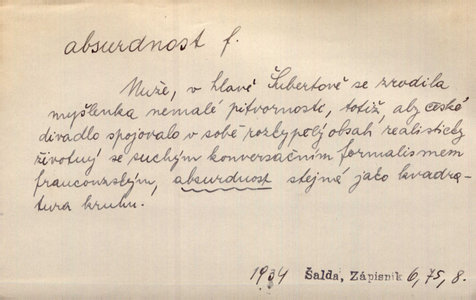 absurdnost f.
Nuže, v hlavě Šubertově se zrodila
myšlenka nemalé pitvornosti, totiž, aby české
divadlo spojovalo v sobě rozkypělý obsah realisticky
životný se suchým konversačním formalismem
francouzským, absurdnost stejná jako kvadra-
tura kruhu.
1934 Šalda, Zápisník 6, 75, 8.